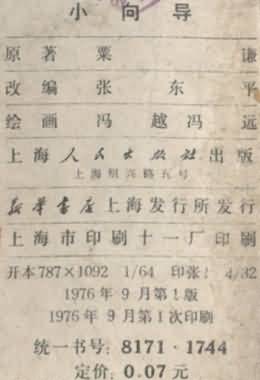 小向导
原著 粟 谦
改编 张东平
绘画 冯越 冯远
上海人民出版社出版
上海绍兴路五号
新华书店上海发行所发行
上海市印刷十一厂印刷
开本787×1092 1/64 印张1 4/32
1976年9月第1版
1976年9月第1次印刷
统一书号: 8171·1744
定价: 0.07元